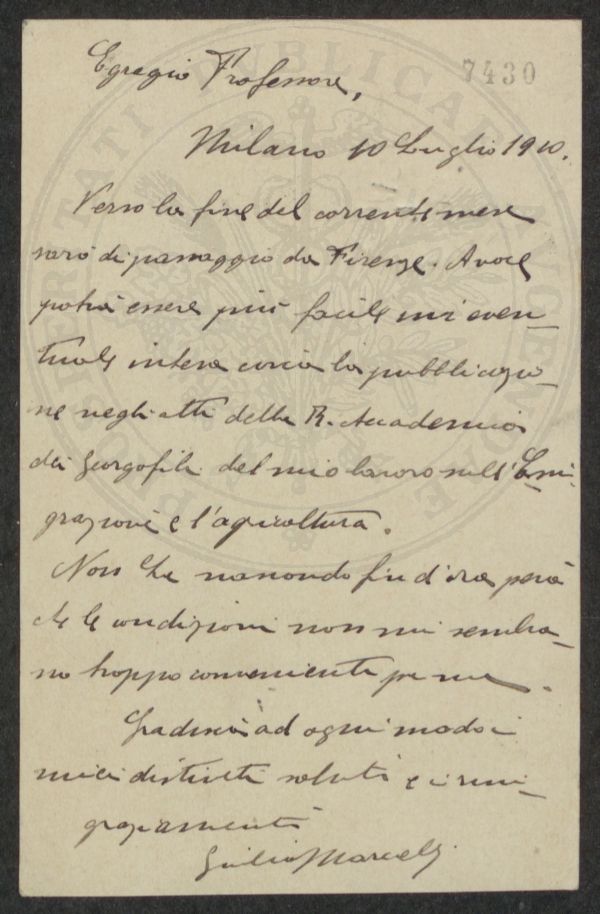 7430
Egregio Professore,
Milano 10 Luglio 1910.
Verso la fine del corrente mese
sarò di passaggio da Firenze. A voce
potrà essere più facile un'even-
tuale intesa circa la pubblicazio-
ne negli atti della R. Accademia
dei Georgofili del mio lavoro sull'Emi-
grazione e l'agricoltura.
Non Le nascondo fin d'ora però
che le condizioni non mi sembra-
no troppo convenienti per me.
Gradisca ad ogni modo i
miei distinti saluti e i rin-
graziamenti
Giulio Marcelli